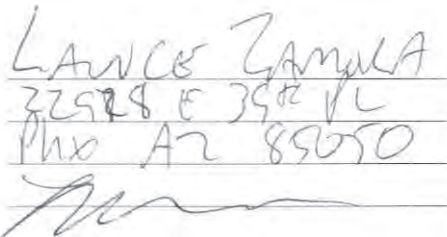 LANCE ZAMORA
22928 E 39th PL
Phx AZ 85050